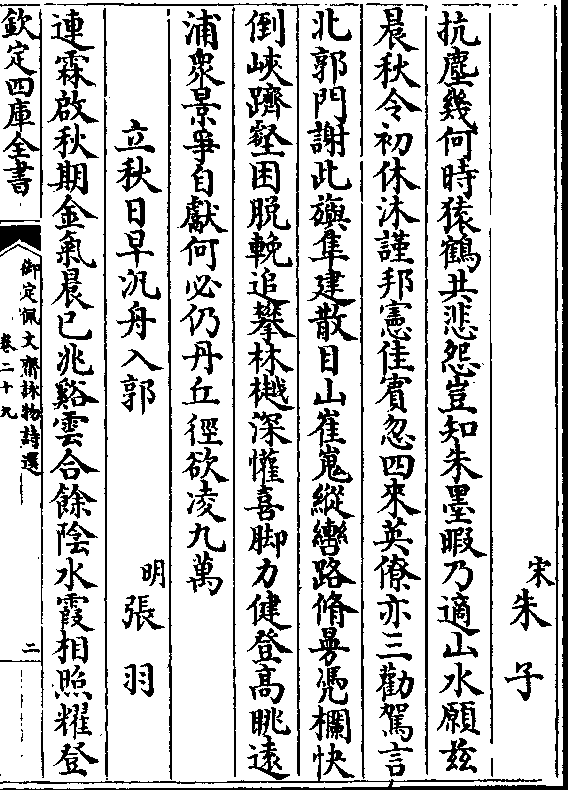 宋朱子
抗塵幾何時猿鶴共悲怨豈知朱墨暇乃適山水願兹
晨秋令初休沐謹邦憲佳賓忽四來英僚亦三勸駕言
北郭門謝此旟隼建散目山崔嵬縱轡路脩曼凭欄快
倒峽躋壑困脱輓追攀林樾深慛喜脚力健登高眺遠
浦衆景爭自獻何必仍丹丘徑欲凌九萬
立秋日早汎舟入郭
明張羽
連霖啟秋期金氣晨已兆谿雲合餘陰水霞相照耀登
欽定四庫全書
御定佩文齋詠物詩選
卷二十九
二